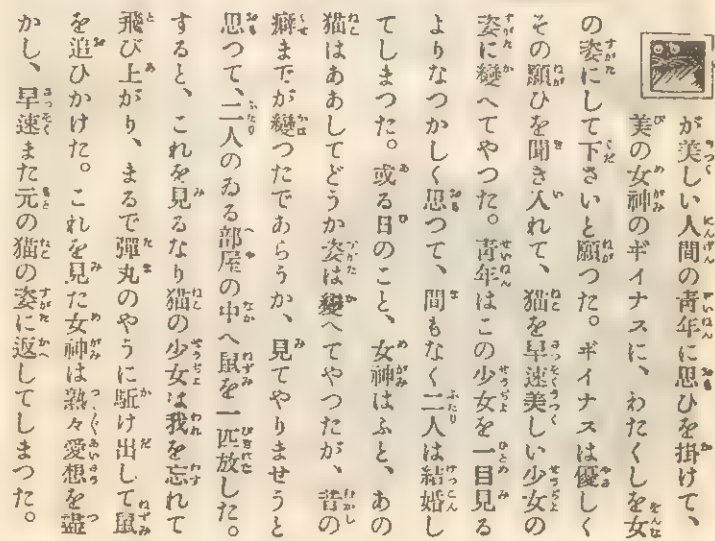 が美しい人間の靑年に思ひを掛けて、
美の女神のヸイナスに、わたくしを女
の姿にして下さいと願つた。ヸイナスは優しく
その願ひを聞き入れて、猫を早速美しい少女の
姿に變へてやつた。靑年はこの少女を一目見る
よりなつかしく思つて、間もなく二人は結婚し
てしまつた。或る日のこと、女神はふと、あの
猫はああしてどうか姿は變へてやつたが、昔の
癖までが變つたであらうか、見てやりませうと
思つて、二人のゐる部屋の中へ鼠を一匹放した。
すると、これを見るなり猫の少女は我を忘れて
飛び上がり、まるで彈丸のやうに駈け出して鼠
を追ひかけた。これを見た女神は熟々愛想を盡
かし、早速また元の猫の姿に返してしまつた。